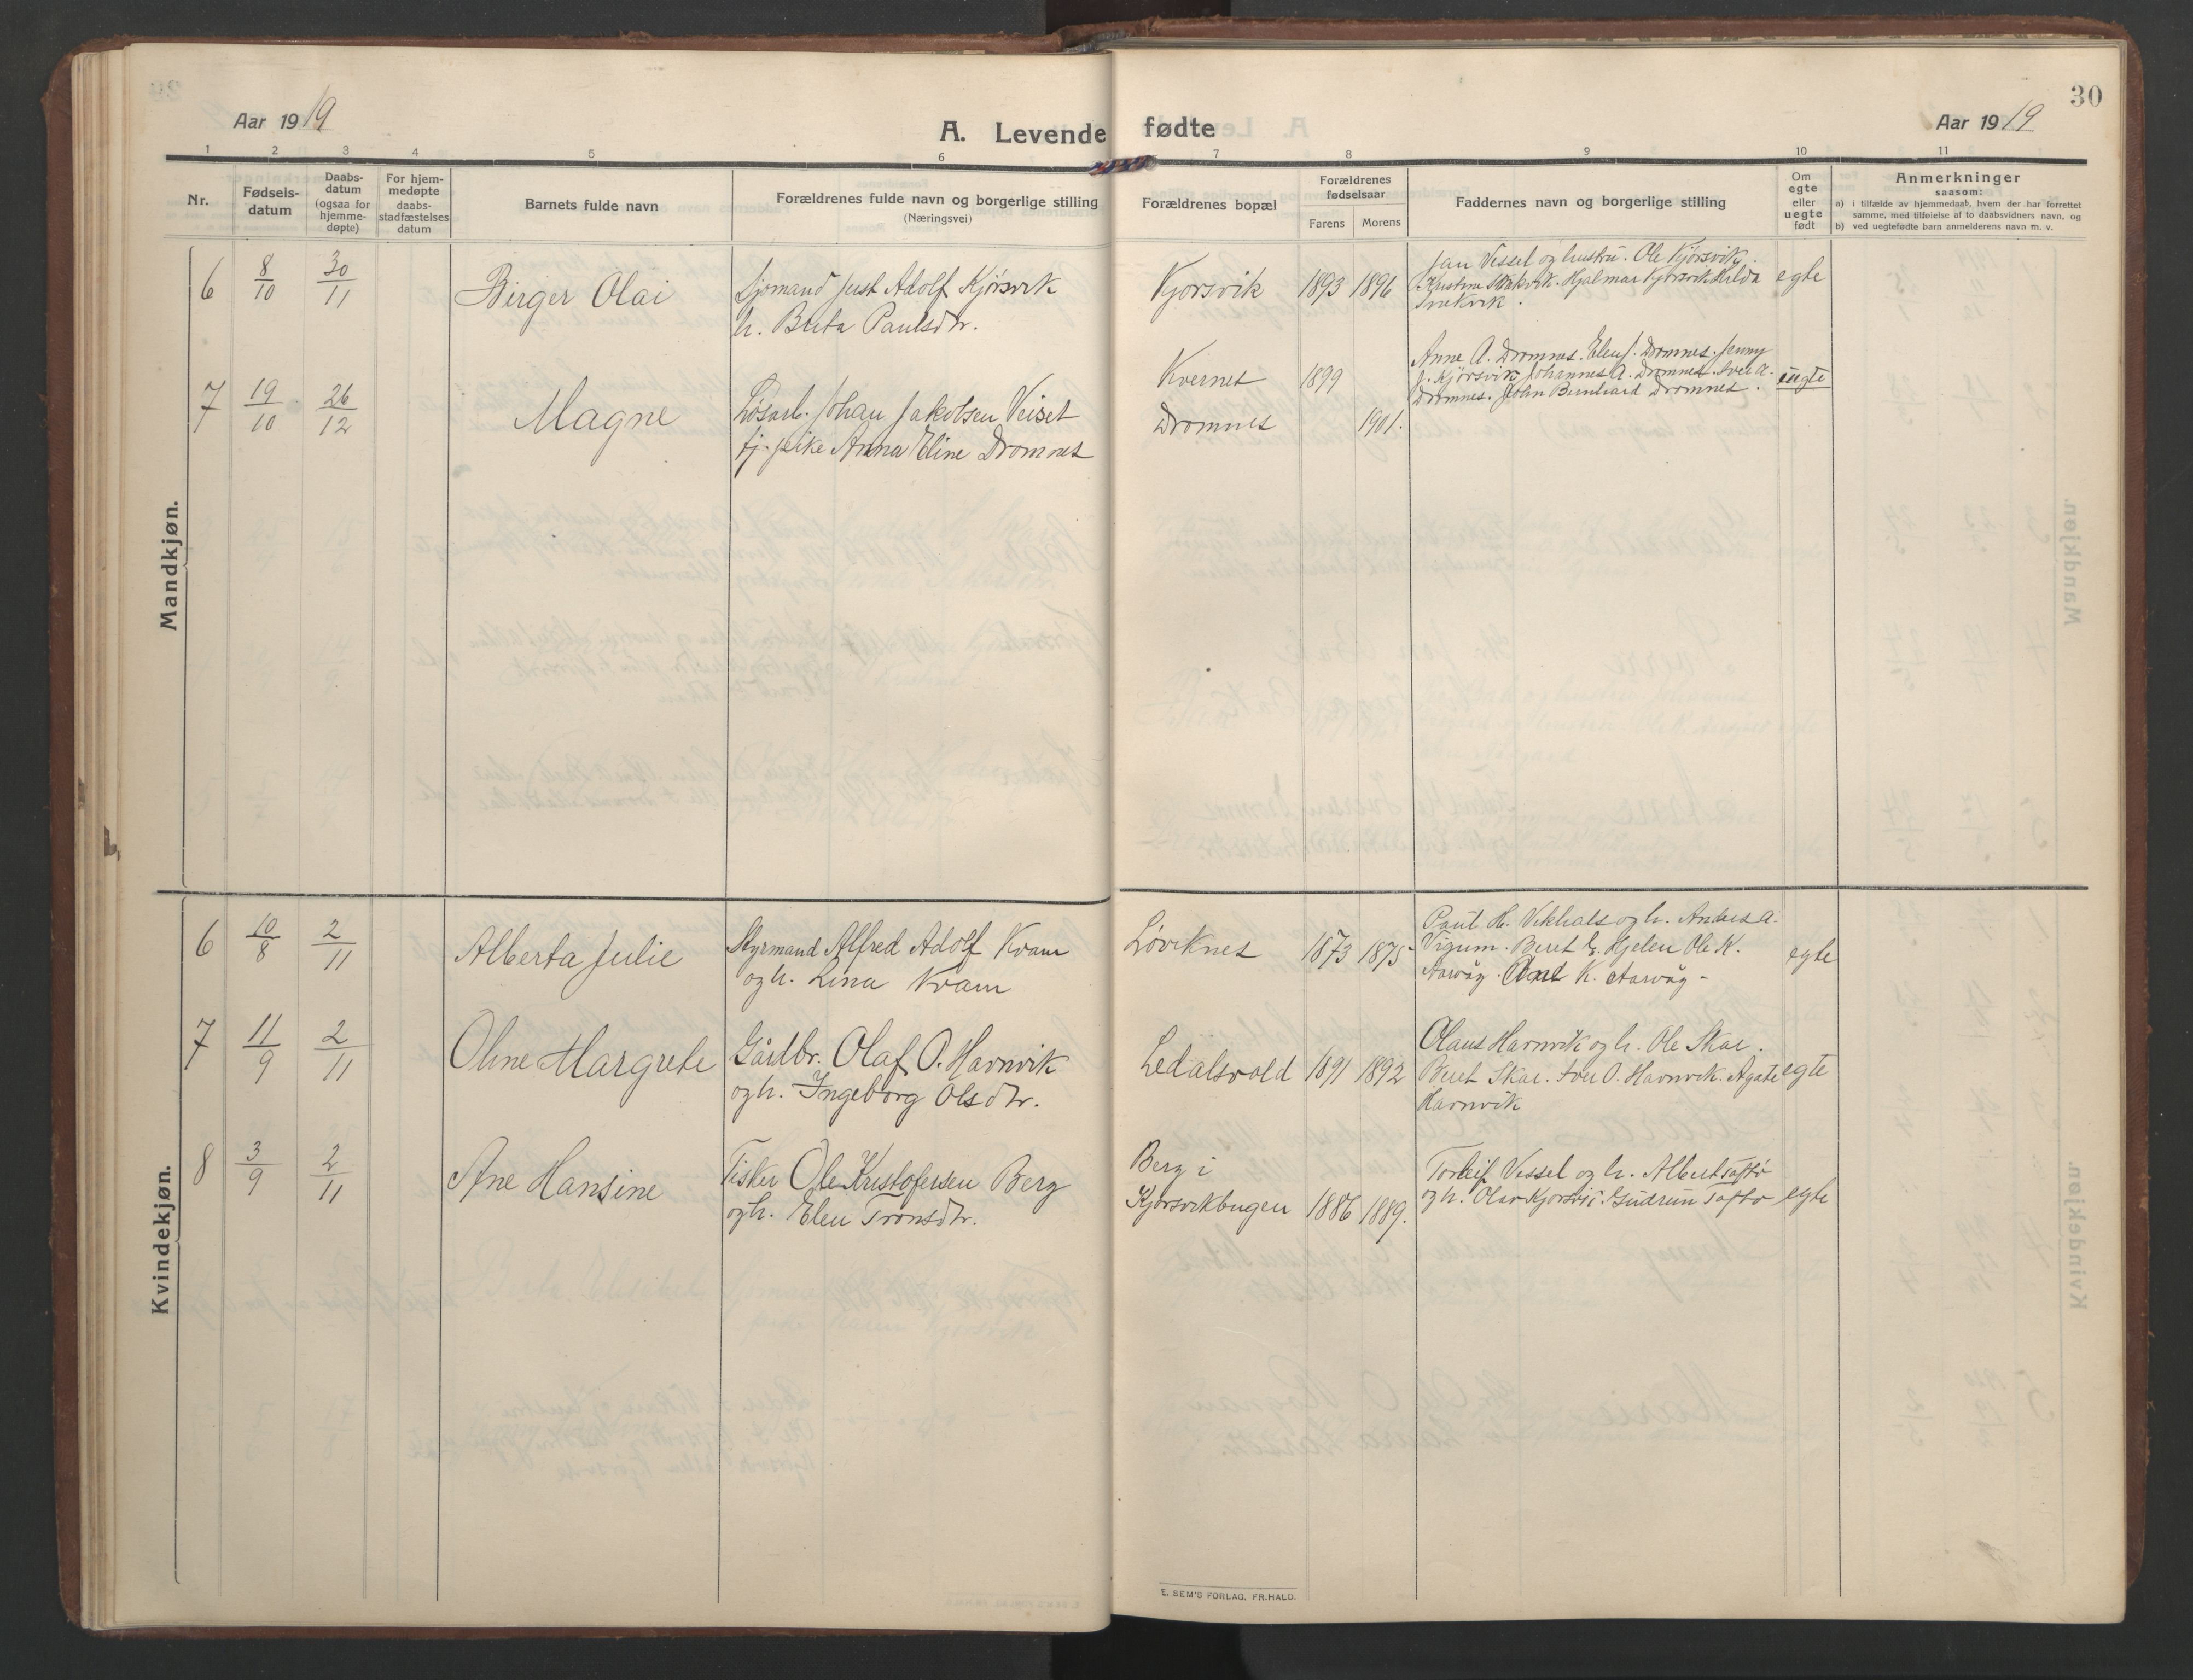 30
Aar 1919
A. Levende fødte
Aar 1919
1 2 3 4 5 6 7 8 9 10 11
Nr.
Fødsels-
datum
Daabs-
datum
(ogsaa for
hjemme-
døpte)
For hjem-
medøpte
daabs-
stadfæstelses
datum
Barnets fulde navn
Forældrenes fulde navn og borgerlige stilling
(Næringsvei)
Forældrenes bopæl
Forældrenes
fødselsaar
Farens Morens
Faddernes navn og borgerlige stilling
Om
egte
eller
uegte
født
Anmerkninger
saasom:
a) i tilfælde av hjemmedaab, hvem der har forrettet
samme, med tilføielse af to daabsvidners navn, og
b) ved uegtefødte barn anmelderens navn m. v.
Mandkjøn.
6 8/10 30/11 Birger Olai
Sjømand Just Adolf Kjørsvik
h. Berta Paulsdtr.
Kjorsvik 1893 1896
Jan Vessel og hustru. Ole Kjørsvik.
Kristine Hjalmar Kjørsvik Hilda
egte
7 19/10 26/12 Magne
Løsarb. Johan Jakobsen Veiset
tj. pike Anna Eline Dromnes
Kvernes 1899
Dromnes 1901.
Anne A. Dromnes. Elen J. Dromnes. Jenny
J. Kjørsvik Johannes A. Dromnes. Iver A.
Dromnes. Johan Bernhard Dromnes.
uegte
Kvindekjøn.
6 10/8 2/11 Alberta Julie
Styrmand Alfred Adolf Kvam
og h. Lina Kvam
Løviknes 1873 1875
Paul H. Vikhals og h. Anders A.
Vigum. Beret E. Hjelen Ole K.
Aarvåg. K. Aarvåg -
egte
7 11/9 2/11 Oline Margrete
Gårdbr. Olaf O. Havnvik
og h. Ingeborg Olsdtr.
Ledalsvold 1891 1892
Olaus Havnvik og h. Ole Skar.
Beret Skar. Iver O. Havnvik. Agate
Havnvik
egte
8 3/9 2/11 Ane Hansine
Fisker Ole Kristofersen Berg
og h. Elen Tronsdtr.
Berg i
Kjørsvikbugen 1886 1889.
Torleif Vessel og h. Albert Taftø
og h. Olav Kjorsvik. Gudrun Taftø
egte
E. SEM'S FORLAG, FR. HALD.